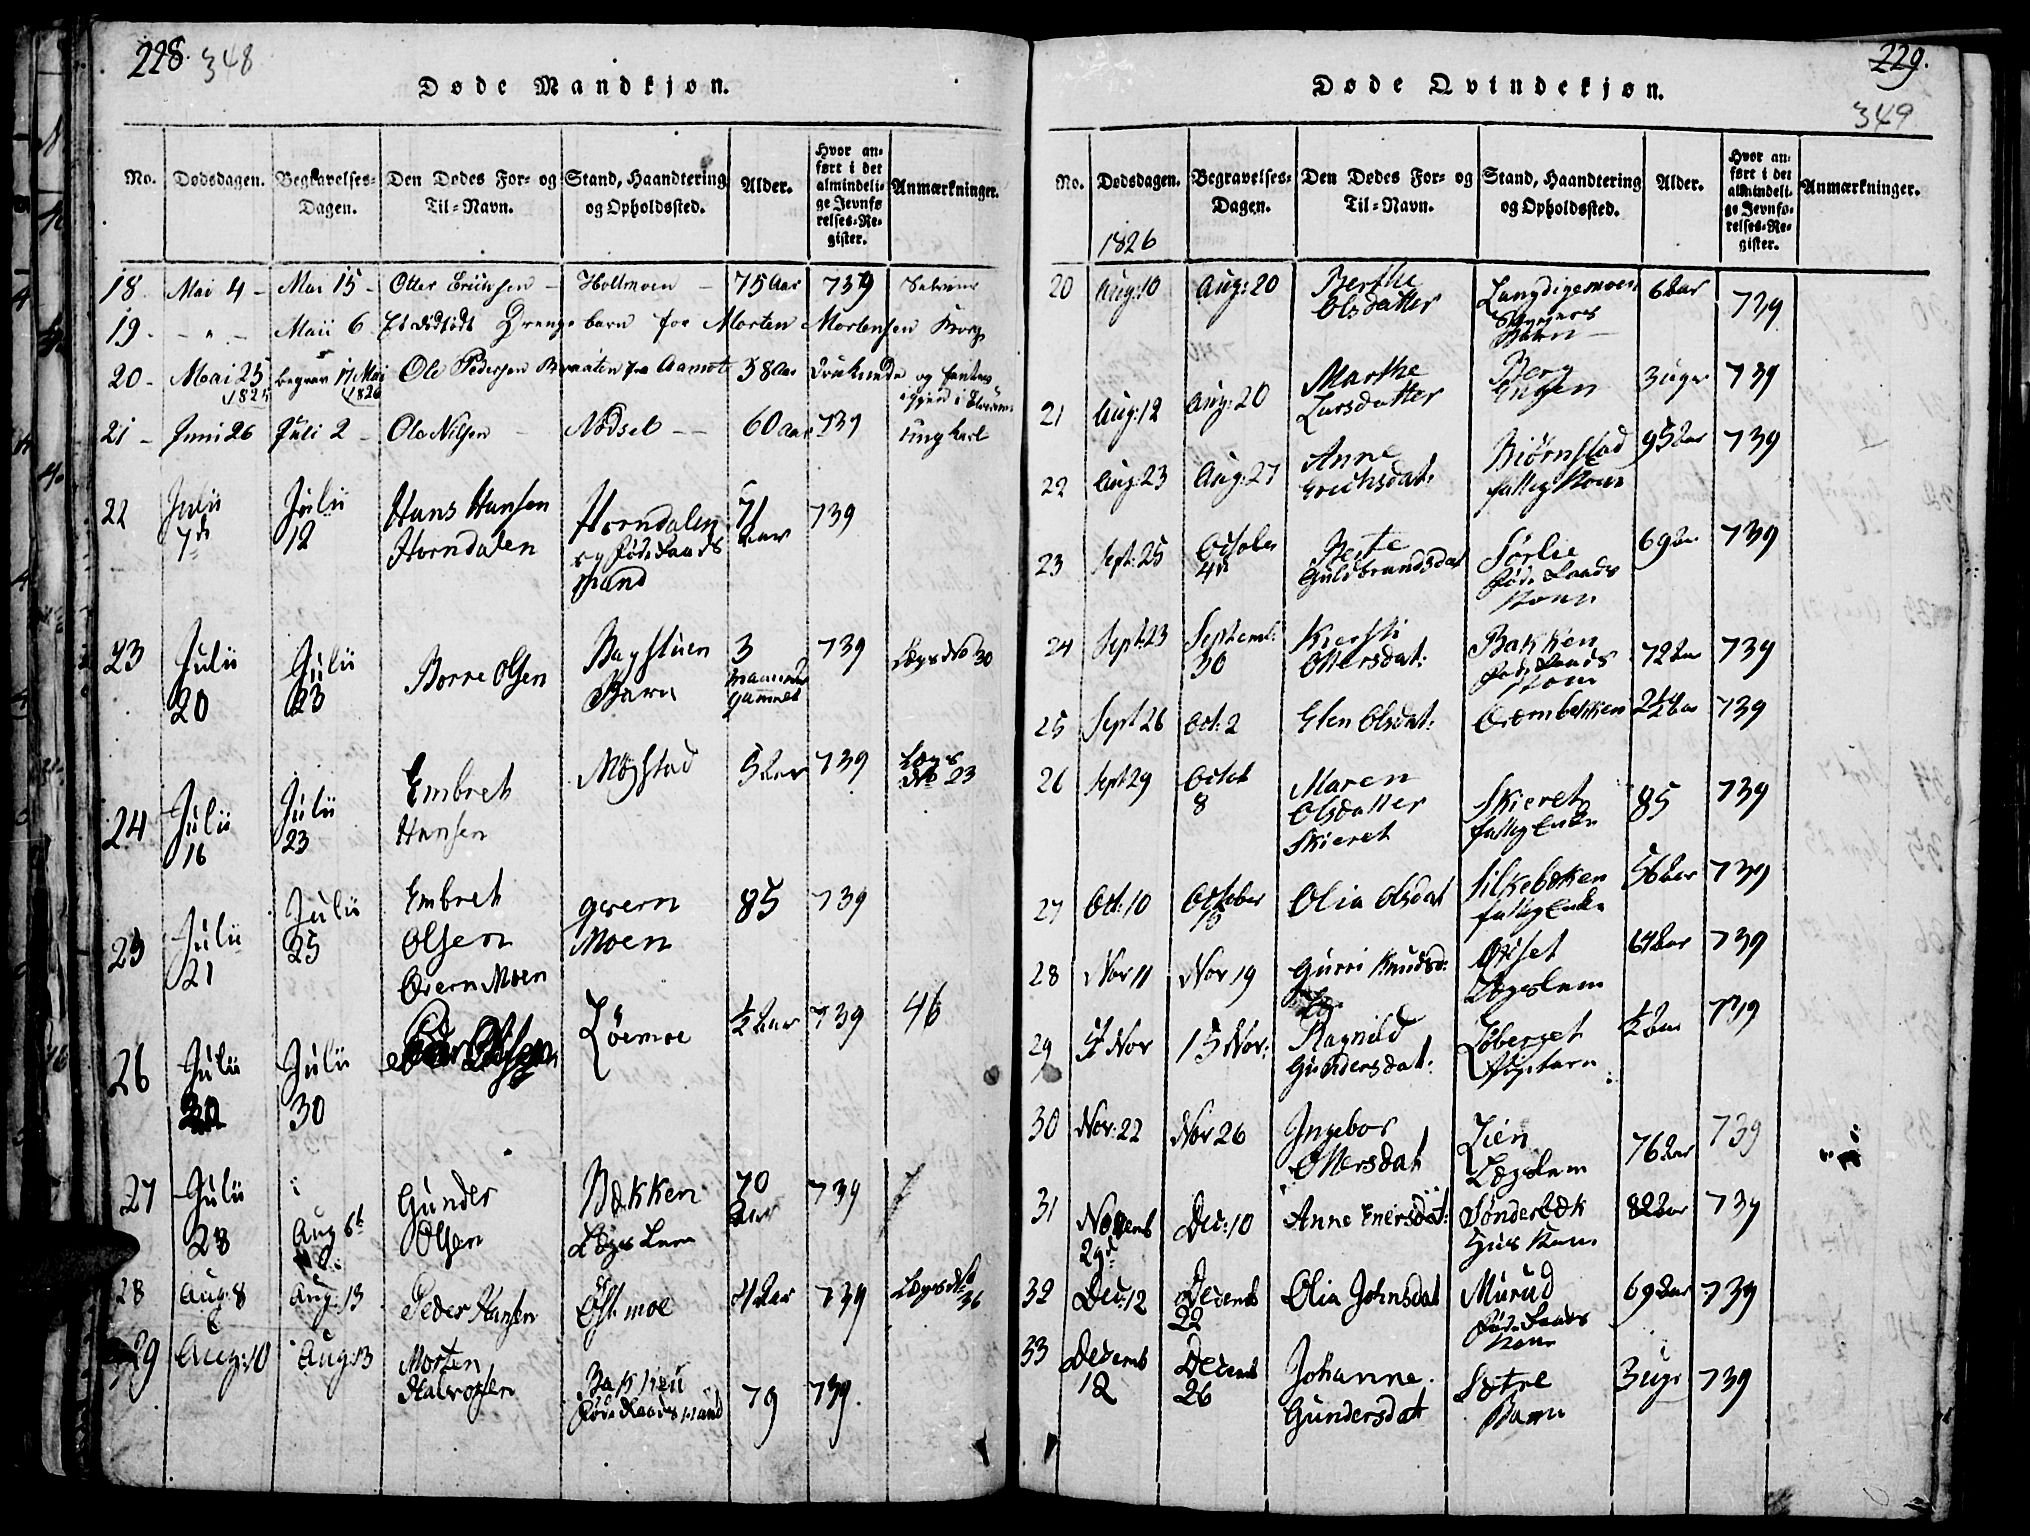 228. 348
Døde Mandkjøn.
No. Dødsdagen. Begravelses-Dagen. Den Dødes For- og Til-Navn. Stand, Haandtering og Opholdssted. Alder. Hvor anført i det almindelige Jevnførelses-Register. Anmærkninger.
18. Mai 4 - Mai 15 - Otter - 75 Aar 739
19. - " - Maii 6 Drengebarn for Morten Mortensen
20 - Mai 25 1825 begrav 17 Mai 1826 Ole Pedersen Braaten fra Aamot 38 Aar og
21 - Juni 26 Juli 2 - Ole Nilsen - Nødset - 60 Aar 739
22 Julii 7de Julii 12 Hans Hansen Horndalen Horndalen og Føde Raads Mand 71 Aar 739
23 Julii 20 Julii 23 Borre Olsen Bagstuen Barn 3 Maaneder gammel 739 Lægs No 30
24 Julii 16 Julii 23 Embret Hansen Møgstad 5 Aar 739 Lægs No 23
25 Julii 21 Julii 25 Embret Olsen Qvern Moen Qvern Moen 85 739
26 Julii Julii 30 Olsen Løemoe ½ Aar 739 46
27 Julii 28 Aug 6t Gunder Olsen Bakken Lægs Lem 70 Aar 739
28 Aug: 8 Aug: 13 Peder Hansen Østmoe Aar 739 Lægs No 36
29 Aug: 10 Aug: 13 Morten Halvorsen Bakken Føde Raads Mand 79 739.
229.
349
Døde Qvindekjøn.
No. Dødsdagen. Begravelses-Dagen. Den Dødes For- og Til-Navn. Stand, Haandtering og Opholdssted. Alder. Hvor anført i det almindelige Jevnførelses-Register. Anmærkninger.
1826
20 Aug: 10 Aug: 20 Berthe Olsdatter Barn 6 Aar 739
21 Aug: 12 Aug: 20 Marthe Larsdatter Berg Engen 3 Uger 739
22 Aug: 23 Aug: 27 Anne Erichsdat: Biørnstad fattig Kone 95 Aar 739
23 Sept: 25 October 4de Berte Guldbrandsdat Sørlie Føde Raads Kone 69 Aar 739
24 Sept: 23 Septemb: 30 Kiersti Ottersdat: Bakken Føde Raads Kone 72 Aar 739
25 Sept 26 Oct: 2 Elen Olsdat: 2½ Aar 739
26 Sept 29 Octob 8 Maren Olsdatter Skieret Skieret fattig Enke 85 739
27 Oct: 10 October 15 Olia Olsdat Silkebekken fattig Enke 56 Aar 739
28 Nov 11 Nov 19 Gurri Knudsd: Lægslem 64 Aar 739
29 Nov 15 Nov: Ragnild Gundersdat: Løberget Pigebarn ½ Aar 739
30 Nov: 22 Nov 26 Ingebor Ottersdat Lien Lægslem 76 Aar 739
31 Novemb 29de Dec: 10 Anne Enersdat: Sønderbæk Huskone 82 Aar 739
32 Dec: 12 Decemb 22 Olia Johnsdat Murud Føde Raads Kone 69 Aar 739
33 Decemb 12 Decemb 26 Johanne Gundersdat Sætre Barn 3 Ugr 739